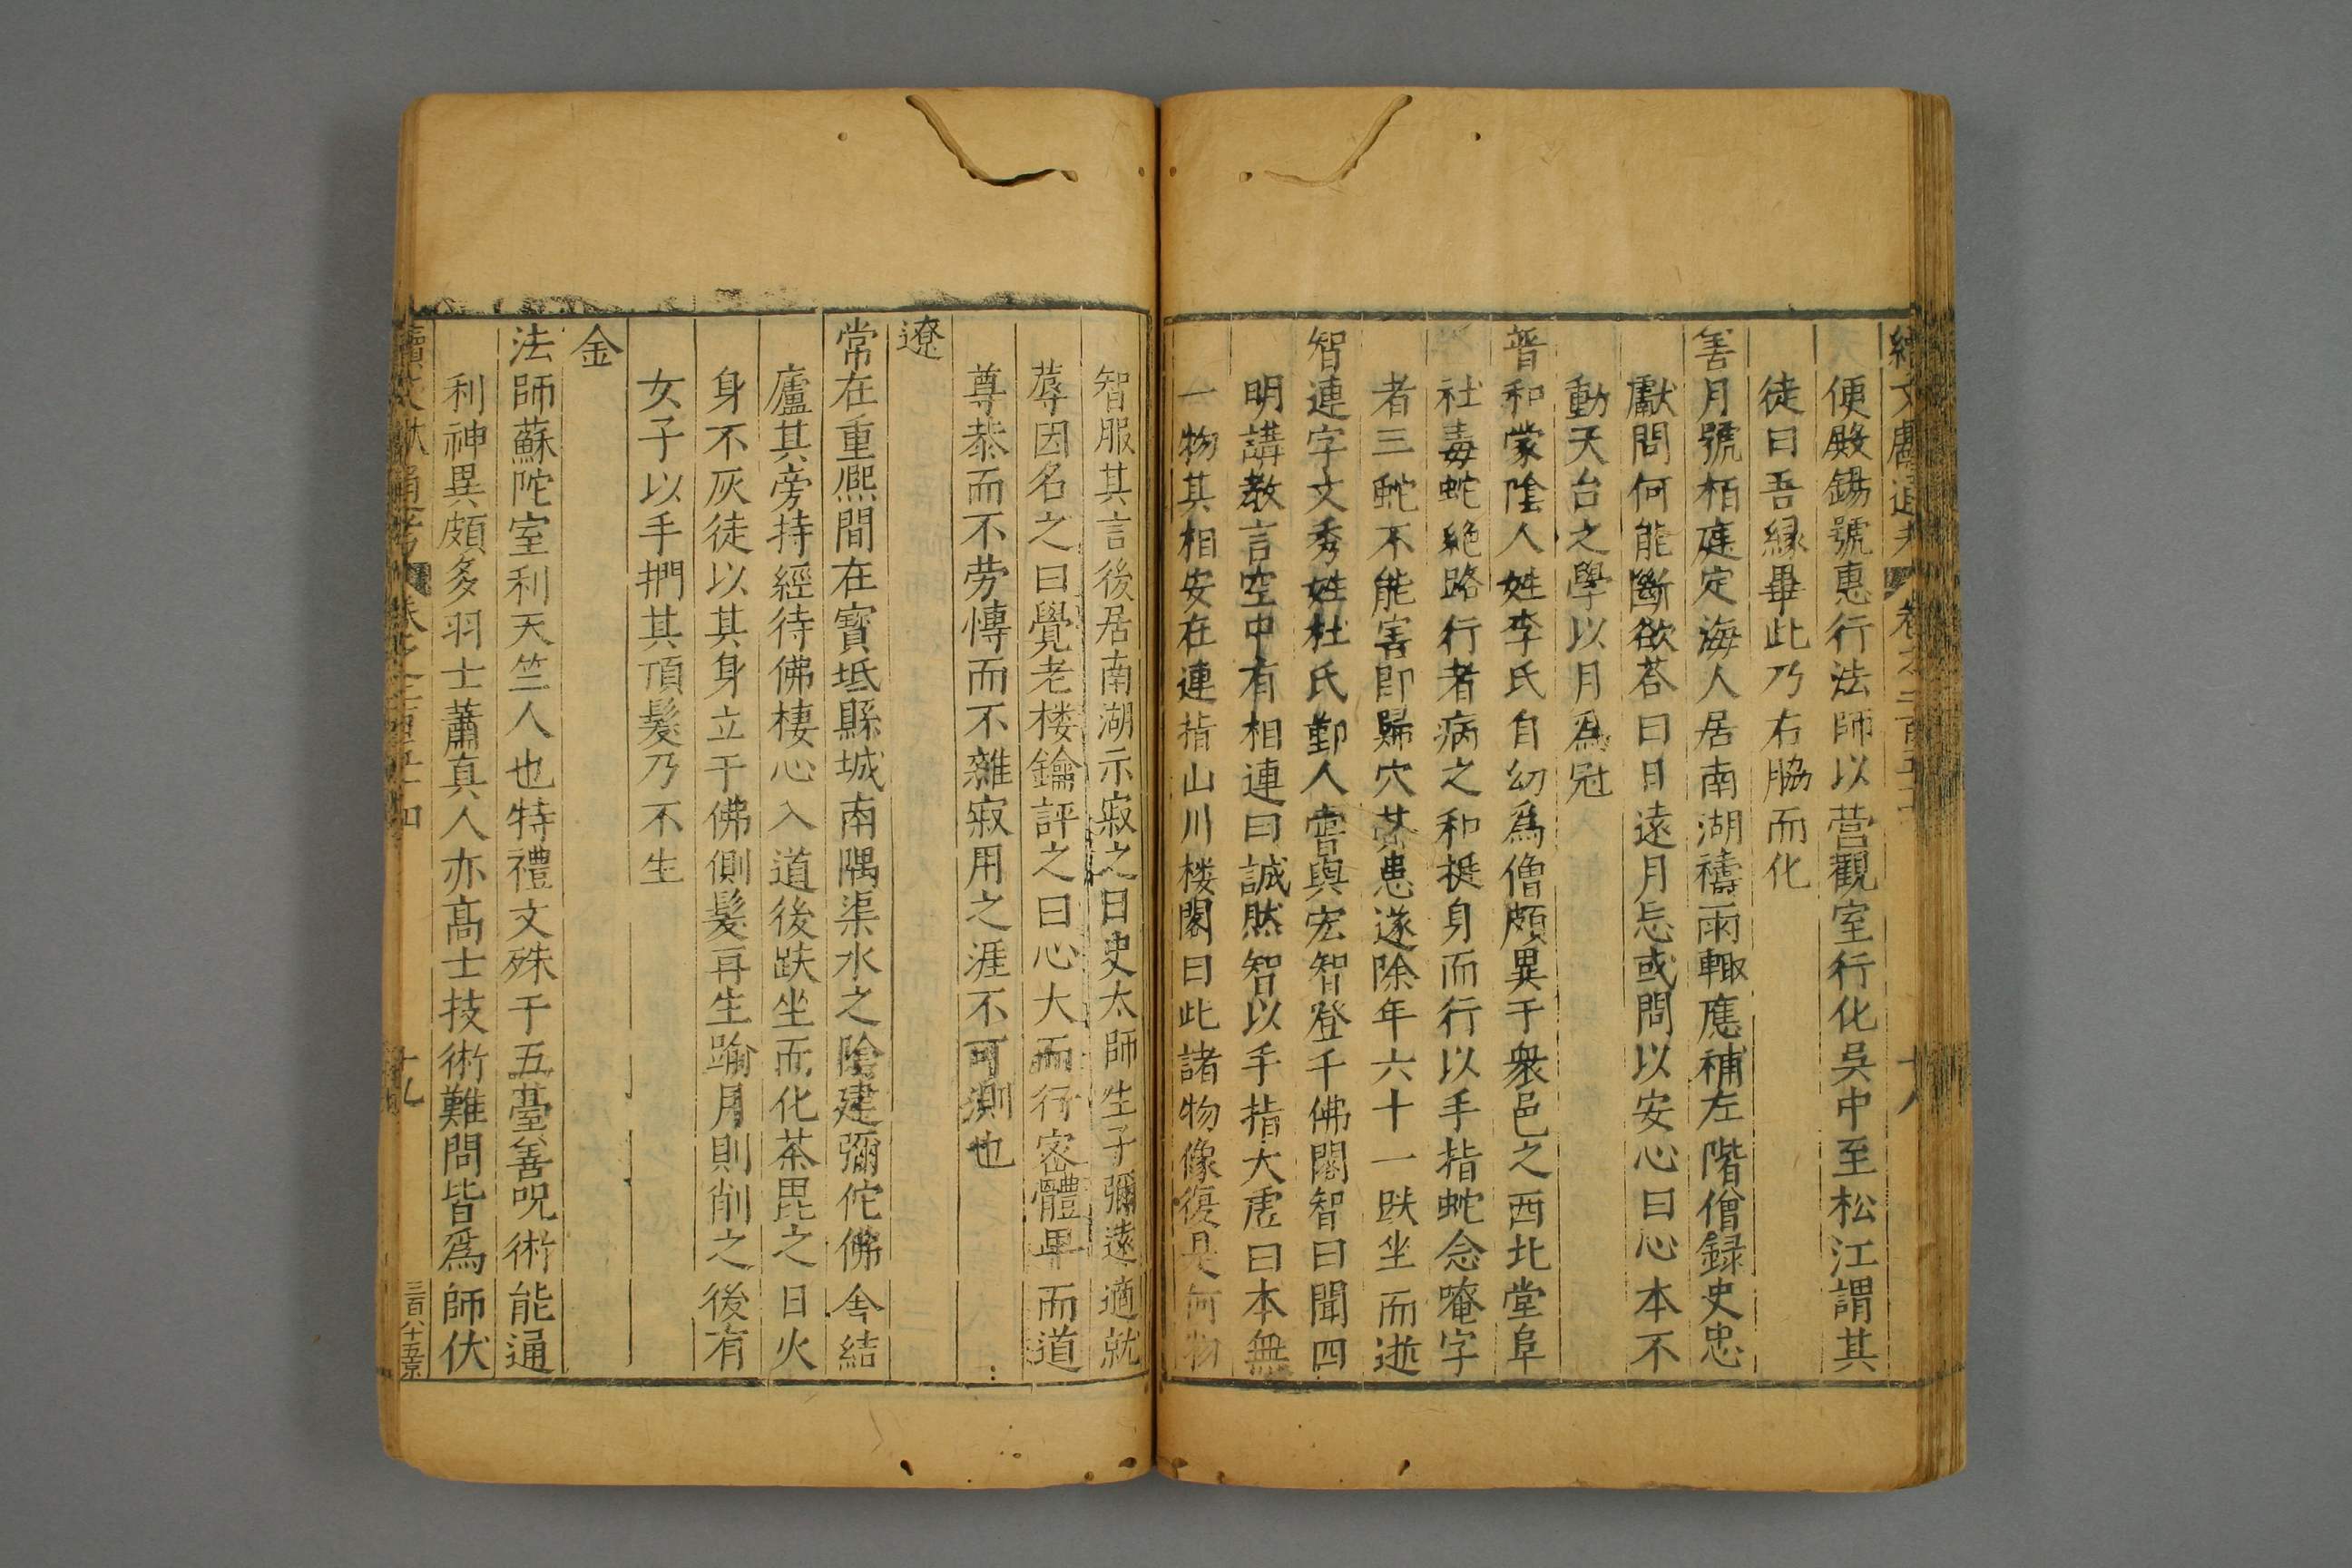 續文獻通考 卷之二百五十 十八
便殿錫號惠行法師以营觀室行化吳中至松江謂其
徒曰吾緣畢此乃右脇而化
善月號栢庭定海人居南湖禱雨輙應補左階僧録史忠
獻問何能斷欲荅曰日遠月忘或問以安心曰心本不
動天台之學以月爲冠
普和蒙陰人姓李氏自幼爲僧頗異于衆邑之西北堂阜
社毒蛇絶路行者病之和挺身而行以手指蛇念唵字
者三蛇不能害即歸穴其患遂除年六十一趺坐而逝
智連字文秀姓杜氏鄞人嘗與宏智登千佛閣智曰聞四
明講教言空中有相連曰誠然智以手指大虗曰本無
一物其相安在連指山川楼閣曰此諸物像復是何物
智服其言後居南湖示寂之日史太師生子彌遠適就
蓐因名之曰覺老楼鑰評之曰心大而行密體卑而道
尊恭而不劳慱而不雜寂用之涯不可測也
遼
常在重熈間在寳坻縣城南隅渠水之陰建彌佗佛舍結
廬其旁持經待佛棲心入道後趺坐而化茶毘之日火
身不灰徒以其身立于佛側髮再生踰月則削之後有
女子以手捫其頂髮乃不生
金
法師蘇陀室利天竺人也特禮文殊于五臺善呪術能通
利神異頗多羽士蕭真人亦高士技術難問皆爲師伏
續文獻通考 卷之二百五十四 十九 三百八十五京